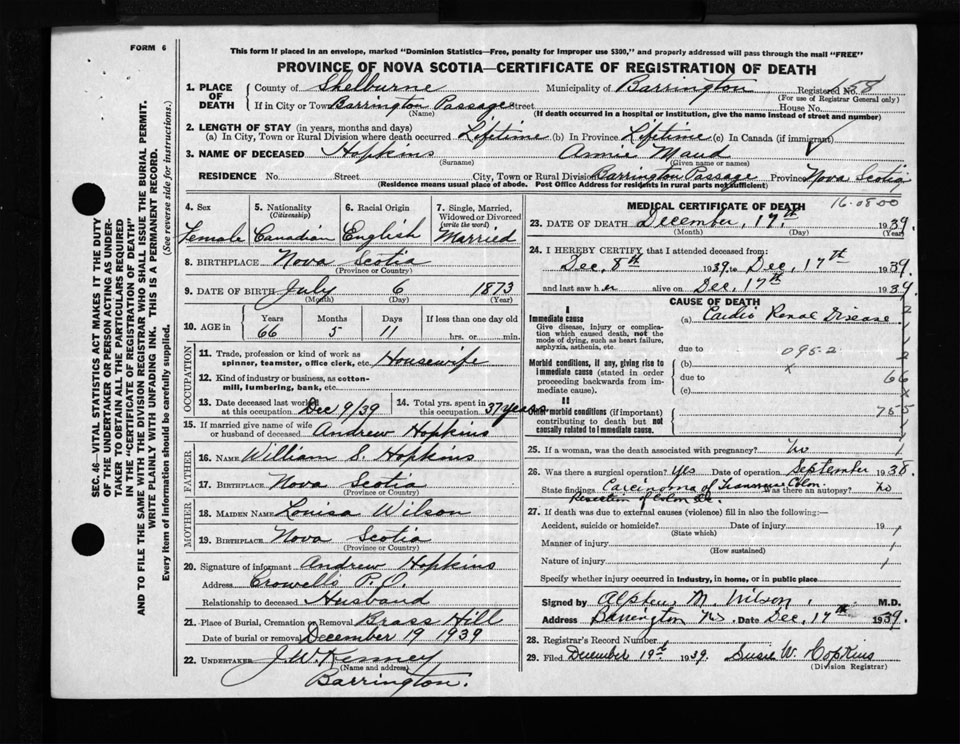 FORM 6
This form if placed in an envelope, marked "Dominion Statistics—Free, penalty for improper use $300," and properly addressed will pass through the mail "FREE"
PROVINCE OF NOVA SCOTIA—CERTIFICATE OF REGISTRATION OF DEATH
1. PLACE OF DEATH County of Shelburne Municipality of Barrington Registered No. 158
(For use of Registrar General only)
If in City or Town Barrington Passage Street House No.
(Name) (If death occurred in a hospital or institution, give the name instead of street and number)
2. LENGTH OF STAY (in years, months and days)
(a) In City, Town or Rural Division where death occurred Lifetime (b) In Province Lifetime (c) In Canada (if immigrant)
3. NAME OF DECEASED Hopkins Annie Maud
(Surname) (Given name or names)
RESIDENCE No. Street City, Town or Rural Division Barrington Passage Province Nova Scotia
(Residence means usual place of abode. Post Office Address for residents in rural parts not sufficient)
16-08-00
4. Sex 5. Nationality (Citizenship) 6. Racial Origin 7. Single, Married, Widowed or Divorced (write the word)
Female Canadian English Married
8. BIRTHPLACE Nova Scotia
(Province or Country)
9. DATE OF BIRTH July 6 1873
(Month) (Day) (Year)
10. AGE in Years Months Days If less than one day old
66 5 11 hrs. or min.
OCCUPATION
11. Trade, profession or kind of work as spinner, teamster, office clerk, etc. Housewife
12. Kind of industry or business, as cotton-mill, lumbering, bank, etc.
13. Date deceased last worked at this occupation Dec 9/39 14. Total yrs. spent in this occupation 37 years
15. If married give name of wife or husband of deceased Andrew Hopkins
FATHER
16. NAME William S. Hopkins
17. BIRTHPLACE Nova Scotia
(Province or Country)
MOTHER
18. MAIDEN NAME Louisa Wilson
19. BIRTHPLACE Nova Scotia
(Province or Country)
20. Signature of informant Andrew Hopkins
Address Crowells P.O.
Relationship to deceased Husband
21. Place of Burial, Cremation or Removal Brass Hill
Date of burial or removal December 19 1939
22. UNDERTAKER J. W. Kenney
(Name and address)
Barrington.
MEDICAL CERTIFICATE OF DEATH
23. DATE OF DEATH December, 17th 1939.
(Month) (Day) (Year)
24. I HEREBY CERTIFY that I attended deceased from:
Dec, 8th 1939 to Dec, 17th 1939.
and last saw her alive on Dec, 17th 1939.
CAUSE OF DEATH
I
Immediate cause
Give disease, injury or complication which caused death, not the mode of dying, such as heart failure, asphyxia, asthenia, etc.
(a) Cardio Renal Disease
due to 095-2
Morbid conditions, if any, giving rise to immediate cause (stated in order proceeding backwards from immediate cause).
(b)
due to
(c)
Other morbid conditions (if important) contributing to death but not causally related to immediate cause.
25. If a woman, was the death associated with pregnancy? No
26. Was there a surgical operation? Yes Date of operation September 1938.
State findings Carcinoma of Transverse Colon. Was there an autopsy? No
27. If death was due to external causes (violence) fill in also the following:—
Accident, suicide or homicide? Date of injury 19
(State which)
Manner of injury
(How sustained)
Nature of injury
Specify whether injury occurred in industry, in home, or in public place
Signed by M. Wilson, M.D.
Address Barrington NS Date Dec, 17th 1939.
28. Registrar's Record Number
29. Filed December 19th 1939 Susie W. Hopkins
(Division Registrar)
SEC. 46—VITAL STATISTICS ACT MAKES IT THE DUTY OF THE UNDERTAKER OR PERSON ACTING AS UNDERTAKER TO OBTAIN ALL THE PARTICULARS REQUIRED IN THE "CERTIFICATE OF REGISTRATION OF DEATH" AND TO FILE THE SAME WITH THE DIVISION REGISTRAR WHO SHALL ISSUE THE BURIAL PERMIT.
WRITE PLAINLY WITH UNFADING INK. THIS IS A PERMANENT RECORD.
Every item of information should be carefully supplied. (See reverse side for instructions.)